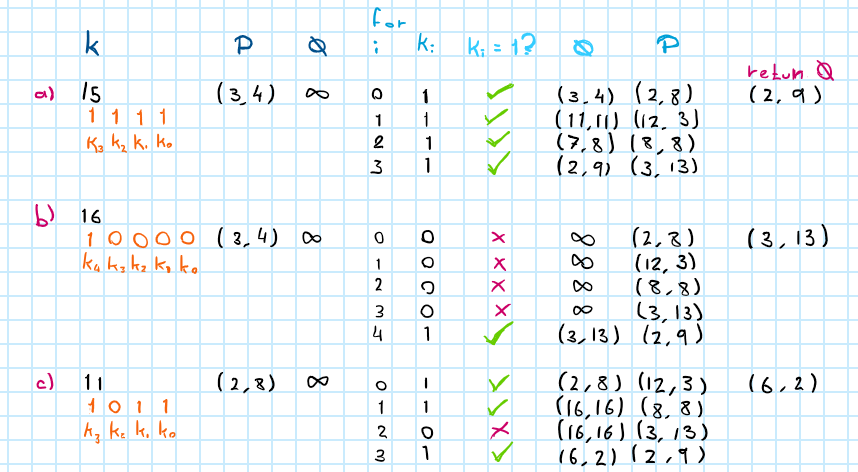 for
k P Q i ki ki = 1? Q P
return Q
a) 15 (3,4) ∞ 0 1 ✓ (3,4) (2,8) (2,9)
1 1 1 1 1 1 ✓ (11,11) (12,3)
k3 k2 k1 k0 2 1 ✓ (7,8) (8,8)
3 1 ✓ (2,9) (3,13)
b) 16
1 0 0 0 0 (3,4) ∞ 0 0 × ∞ (2,8) (3,13)
k4 k3 k2 k1 k0 1 0 × ∞ (12,3)
2 0 × ∞ (8,8)
3 0 × ∞ (3,13)
4 1 ✓ (3,13) (2,9)
c) 11 (2,8) ∞ 0 1 ✓ (2,8) (12,3) (6,2)
1 0 1 1 1 1 ✓ (16,16) (8,8)
k3 k2 k1 k0 2 0 × (16,16) (3,13)
3 1 ✓ (6,2) (2,9)